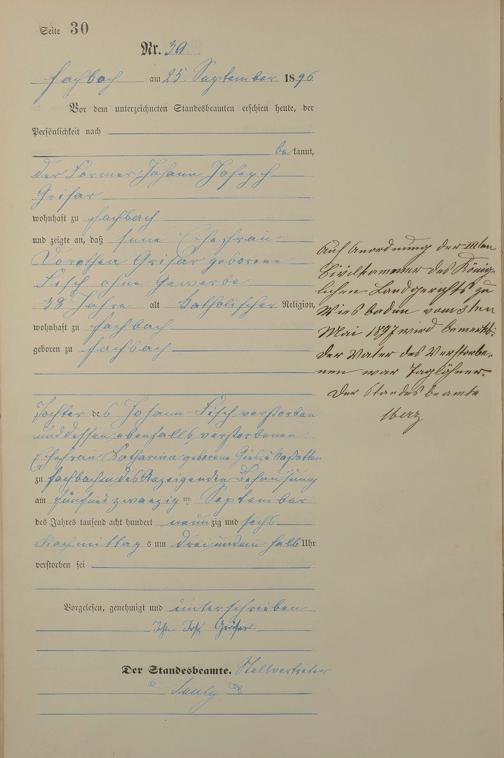 Seite 30
Nr. 30
Fachbach am 25 September 1896
Vor dem unterzeichneten Standesbeamten erschien heute, der
Persönlichkeit nach
bekannt,
der Former Johann Joseph
Grisar
wohnhaft zu Fachbach
und zeigte an, daß seine Ehefrau
Dorothea Grisar geborene
Fisch ohne Gewerbe
38 Jahre alt katholischer Religion,
wohnhaft zu Fachbach
geboren zu Fachbach
Tochter des Johann Fisch verstorben
und dessen ebenfalls verstorbenen
Ehefrau Katharina geborene
zu Fachbach in des Anzeigenden Behausung
am fünfundzwanzigten September
des Jahres tausend acht hundert neunzig und sechs
Nachmittags um drei und ein halb Uhr
verstorben sei
Vorgelesen, genehmigt und unterschrieben
Joh. Jos. Grisar
Der Standesbeamte. Stellvertreter
Auf Anordnung der IIIten
Civilkammer des König-
lichen Landgerichts zu
Wiesbaden vom 3ten
Mai 1897 wird bemerkt:
der Vater des Verstorbe-
nen war Taglöhner.
Der Standesbeamte